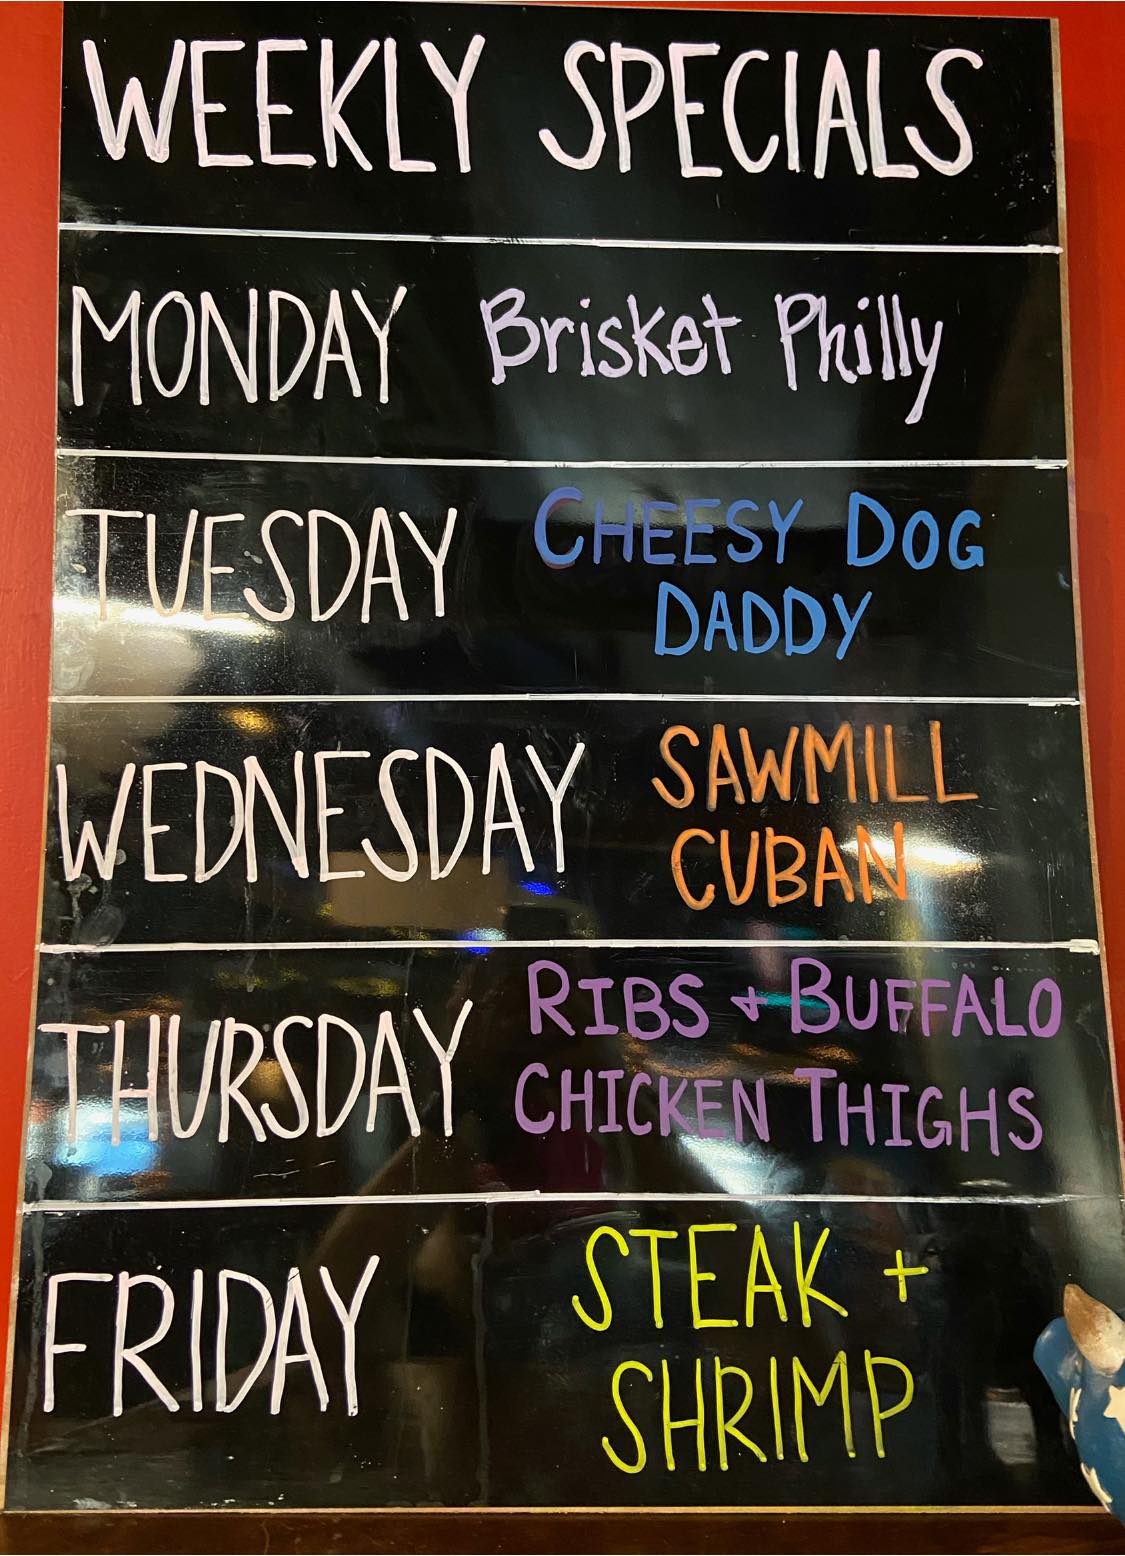 WEEKLY SPECIALS
MONDAY Brisket Philly
TUESDAY CHEESY DOG
DADDY
WEDNESDAY SAWMILL
CUBAN
THURSDAY RIBS + BUFFALO
CHICKEN THIGHS
FRIDAY STEAK +
SHRIMP